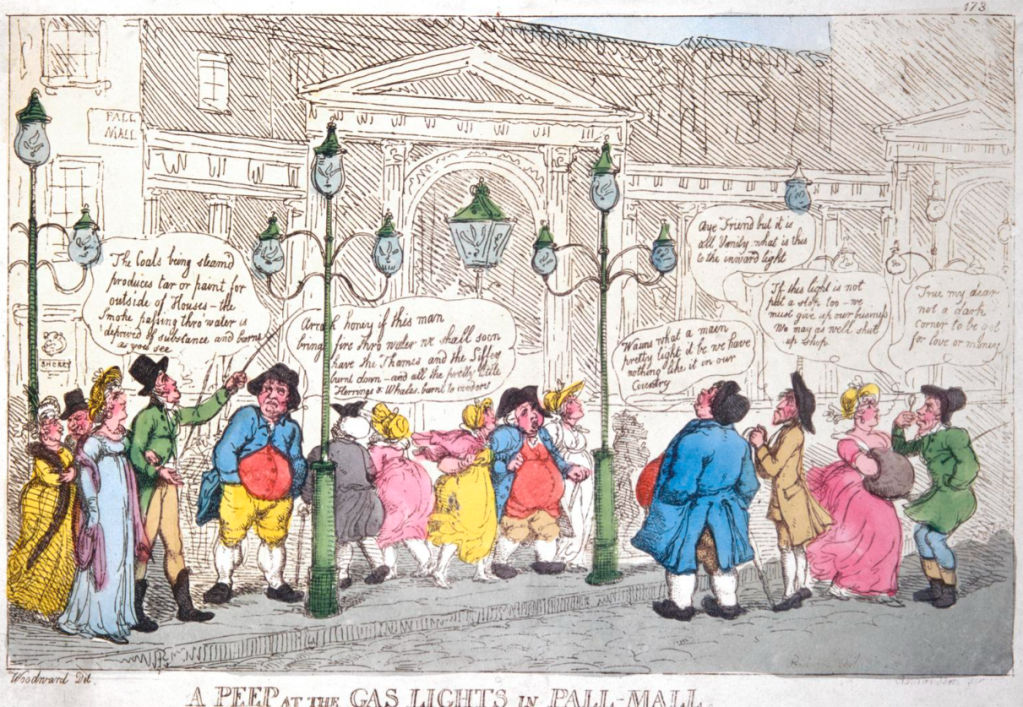 173
PALL
MALL
The Coals being steam'd
produces tar or paint for
outside of Houses - the
Smoke passing thro' water is
deprived of substance and burns
as you see
Arrah honey if this man
brings fire thro water we shall soon
have the Thames and the Liffey
burnt down - and all the pretty little
Herrings & Whales burnt to cinders
Wauns what a main
pretty light it be we have
nothing like it in our
Country
Aye Friend but it is
all Vanity what is this
to the inward light
If this light is not
put a stop too - we
must give up our business
We may as well shut
up shop
True my dear
not a dark
corner to be got
for love or money
Woodward Del.
A PEEP AT THE GAS LIGHTS IN PALL-MALL.